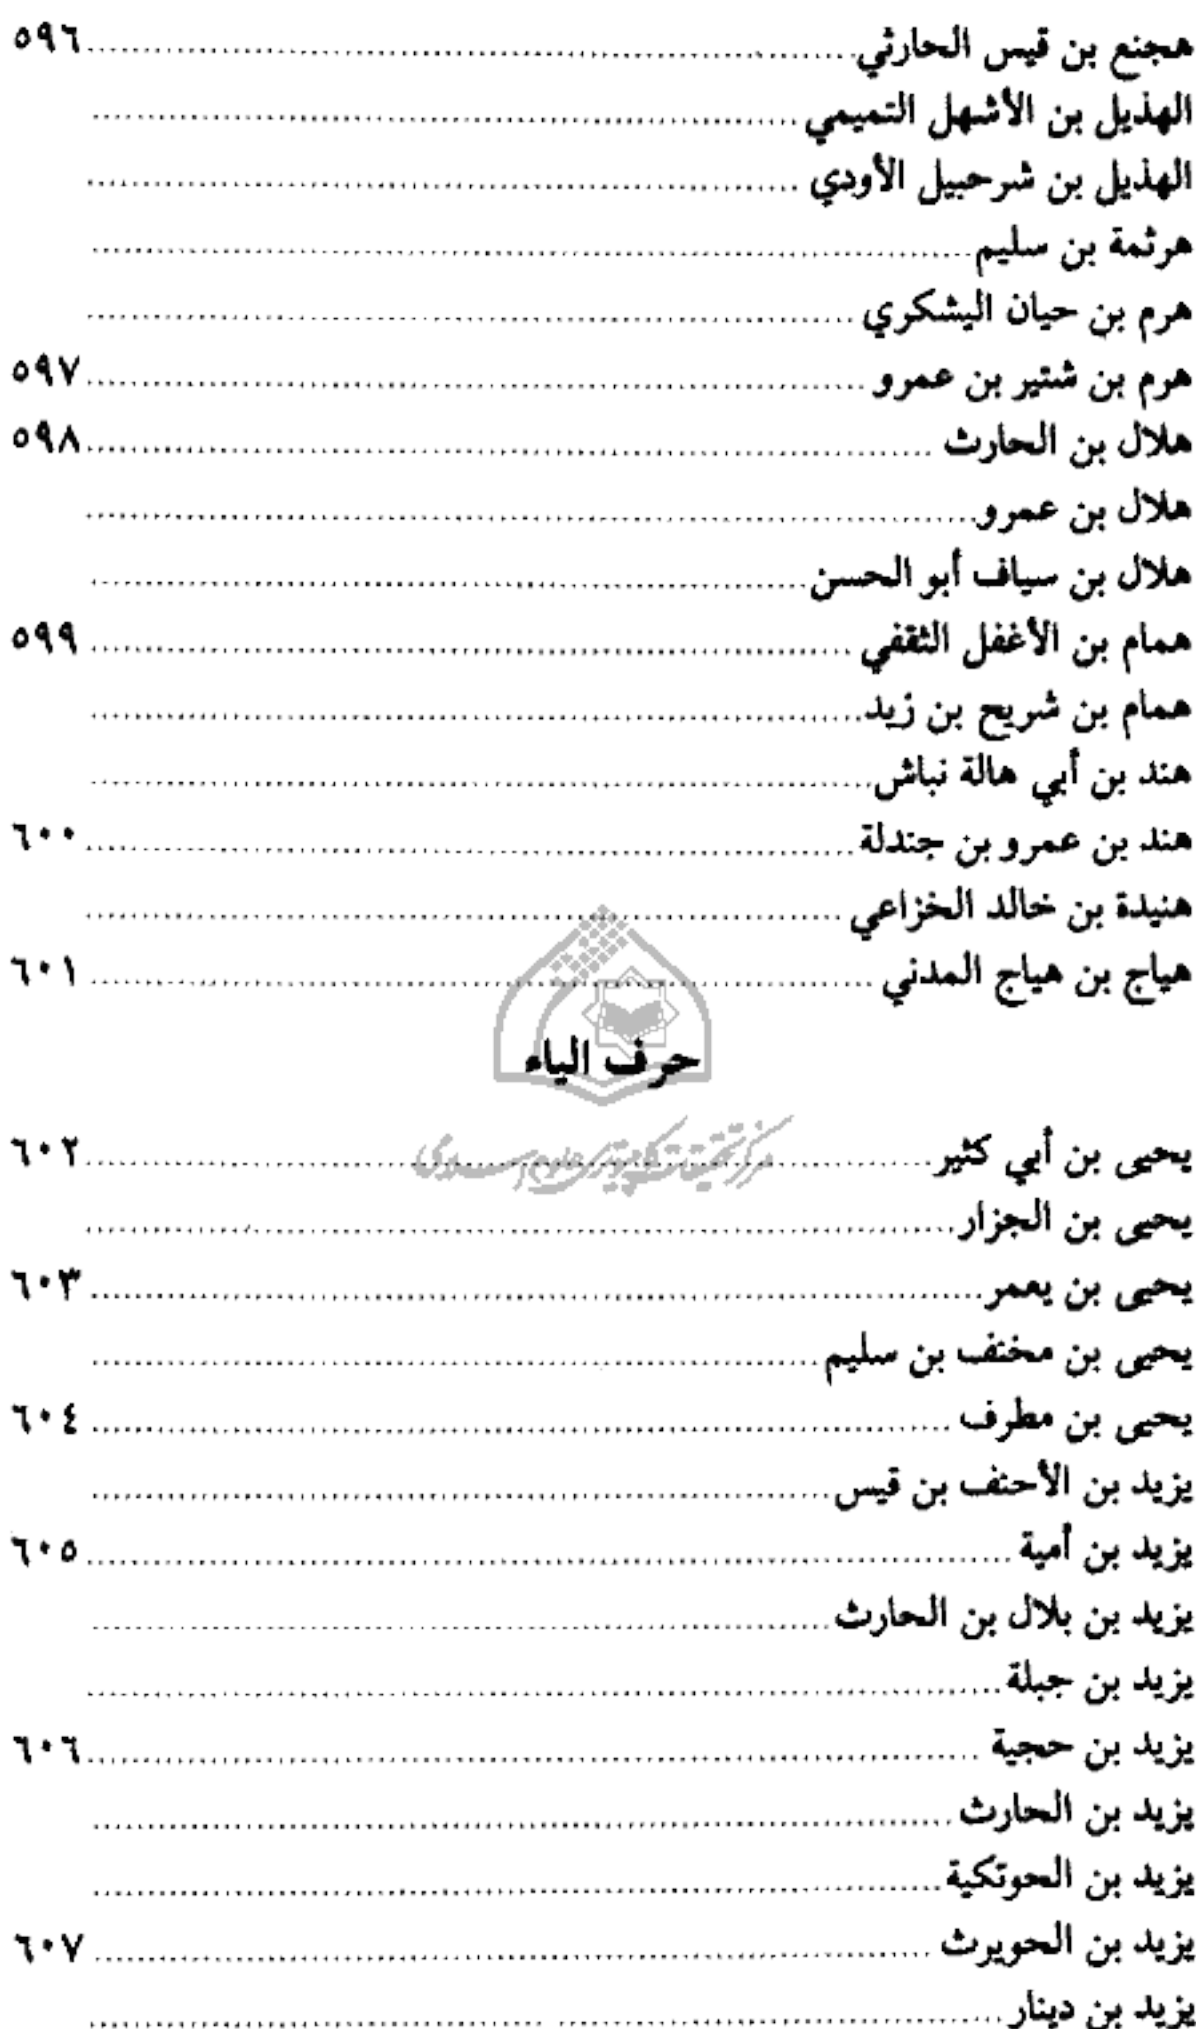 هجنع بن قيس الحارثي ..... ٥٩٦
الهذيل بن الأشهل التميمي .....
الهذيل بن شرحبيل الأودي .....
هرثمة بن سليم .....
هرم بن حيان اليشكري .....
هرم بن شتير بن عمرو ..... ٥٩٧
هلال بن الحارث ..... ٥٩٨
هلال بن عمرو .....
هلال بن سياف أبو الحسن .....
همام بن الأغفل الثقفي ..... ٥٩٩
همام بن شريح بن زيد .....
هند بن أبي هالة نباش .....
هند بن عمرو بن جندلة ..... ٦٠٠
هنيدة بن خالد الخزاعي .....
هياج بن هياج المدني ..... ٦٠١
حرف الياء
مركز تحقيقات كامپيوتري علوم اسلامي
يحيى بن أبي كثير ..... ٦٠٢
يحيى بن الجزار .....
يحيى بن يعمر ..... ٦٠٣
يحيى بن مخنف بن سليم .....
يحيى بن مطرف ..... ٦٠٤
يزيد بن الأحنف بن قيس .....
يزيد بن أمية ..... ٦٠٥
يزيد بن بلال بن الحارث .....
يزيد بن جبلة .....
يزيد بن حجية ..... ٦٠٦
يزيد بن الحارث .....
يزيد بن الحوتكية .....
يزيد بن الحويرث ..... ٦٠٧
يزيد بن دينار .....